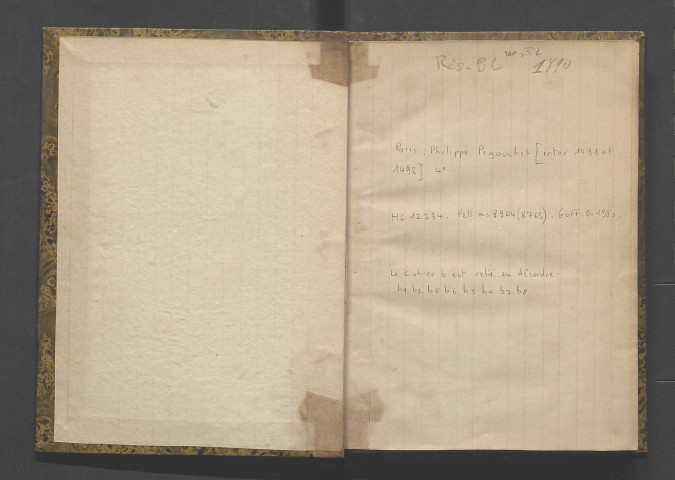 Rés-8 L
1810
Paris : Philippe Pigouchet [inter 1491 et
1498] 4°
HC 12234. Pell ms 8904 (8765). Goff O-198.
Le cahier b est relié en désordre :
b1 b2 b5 b6 b3 b4 b7 b8